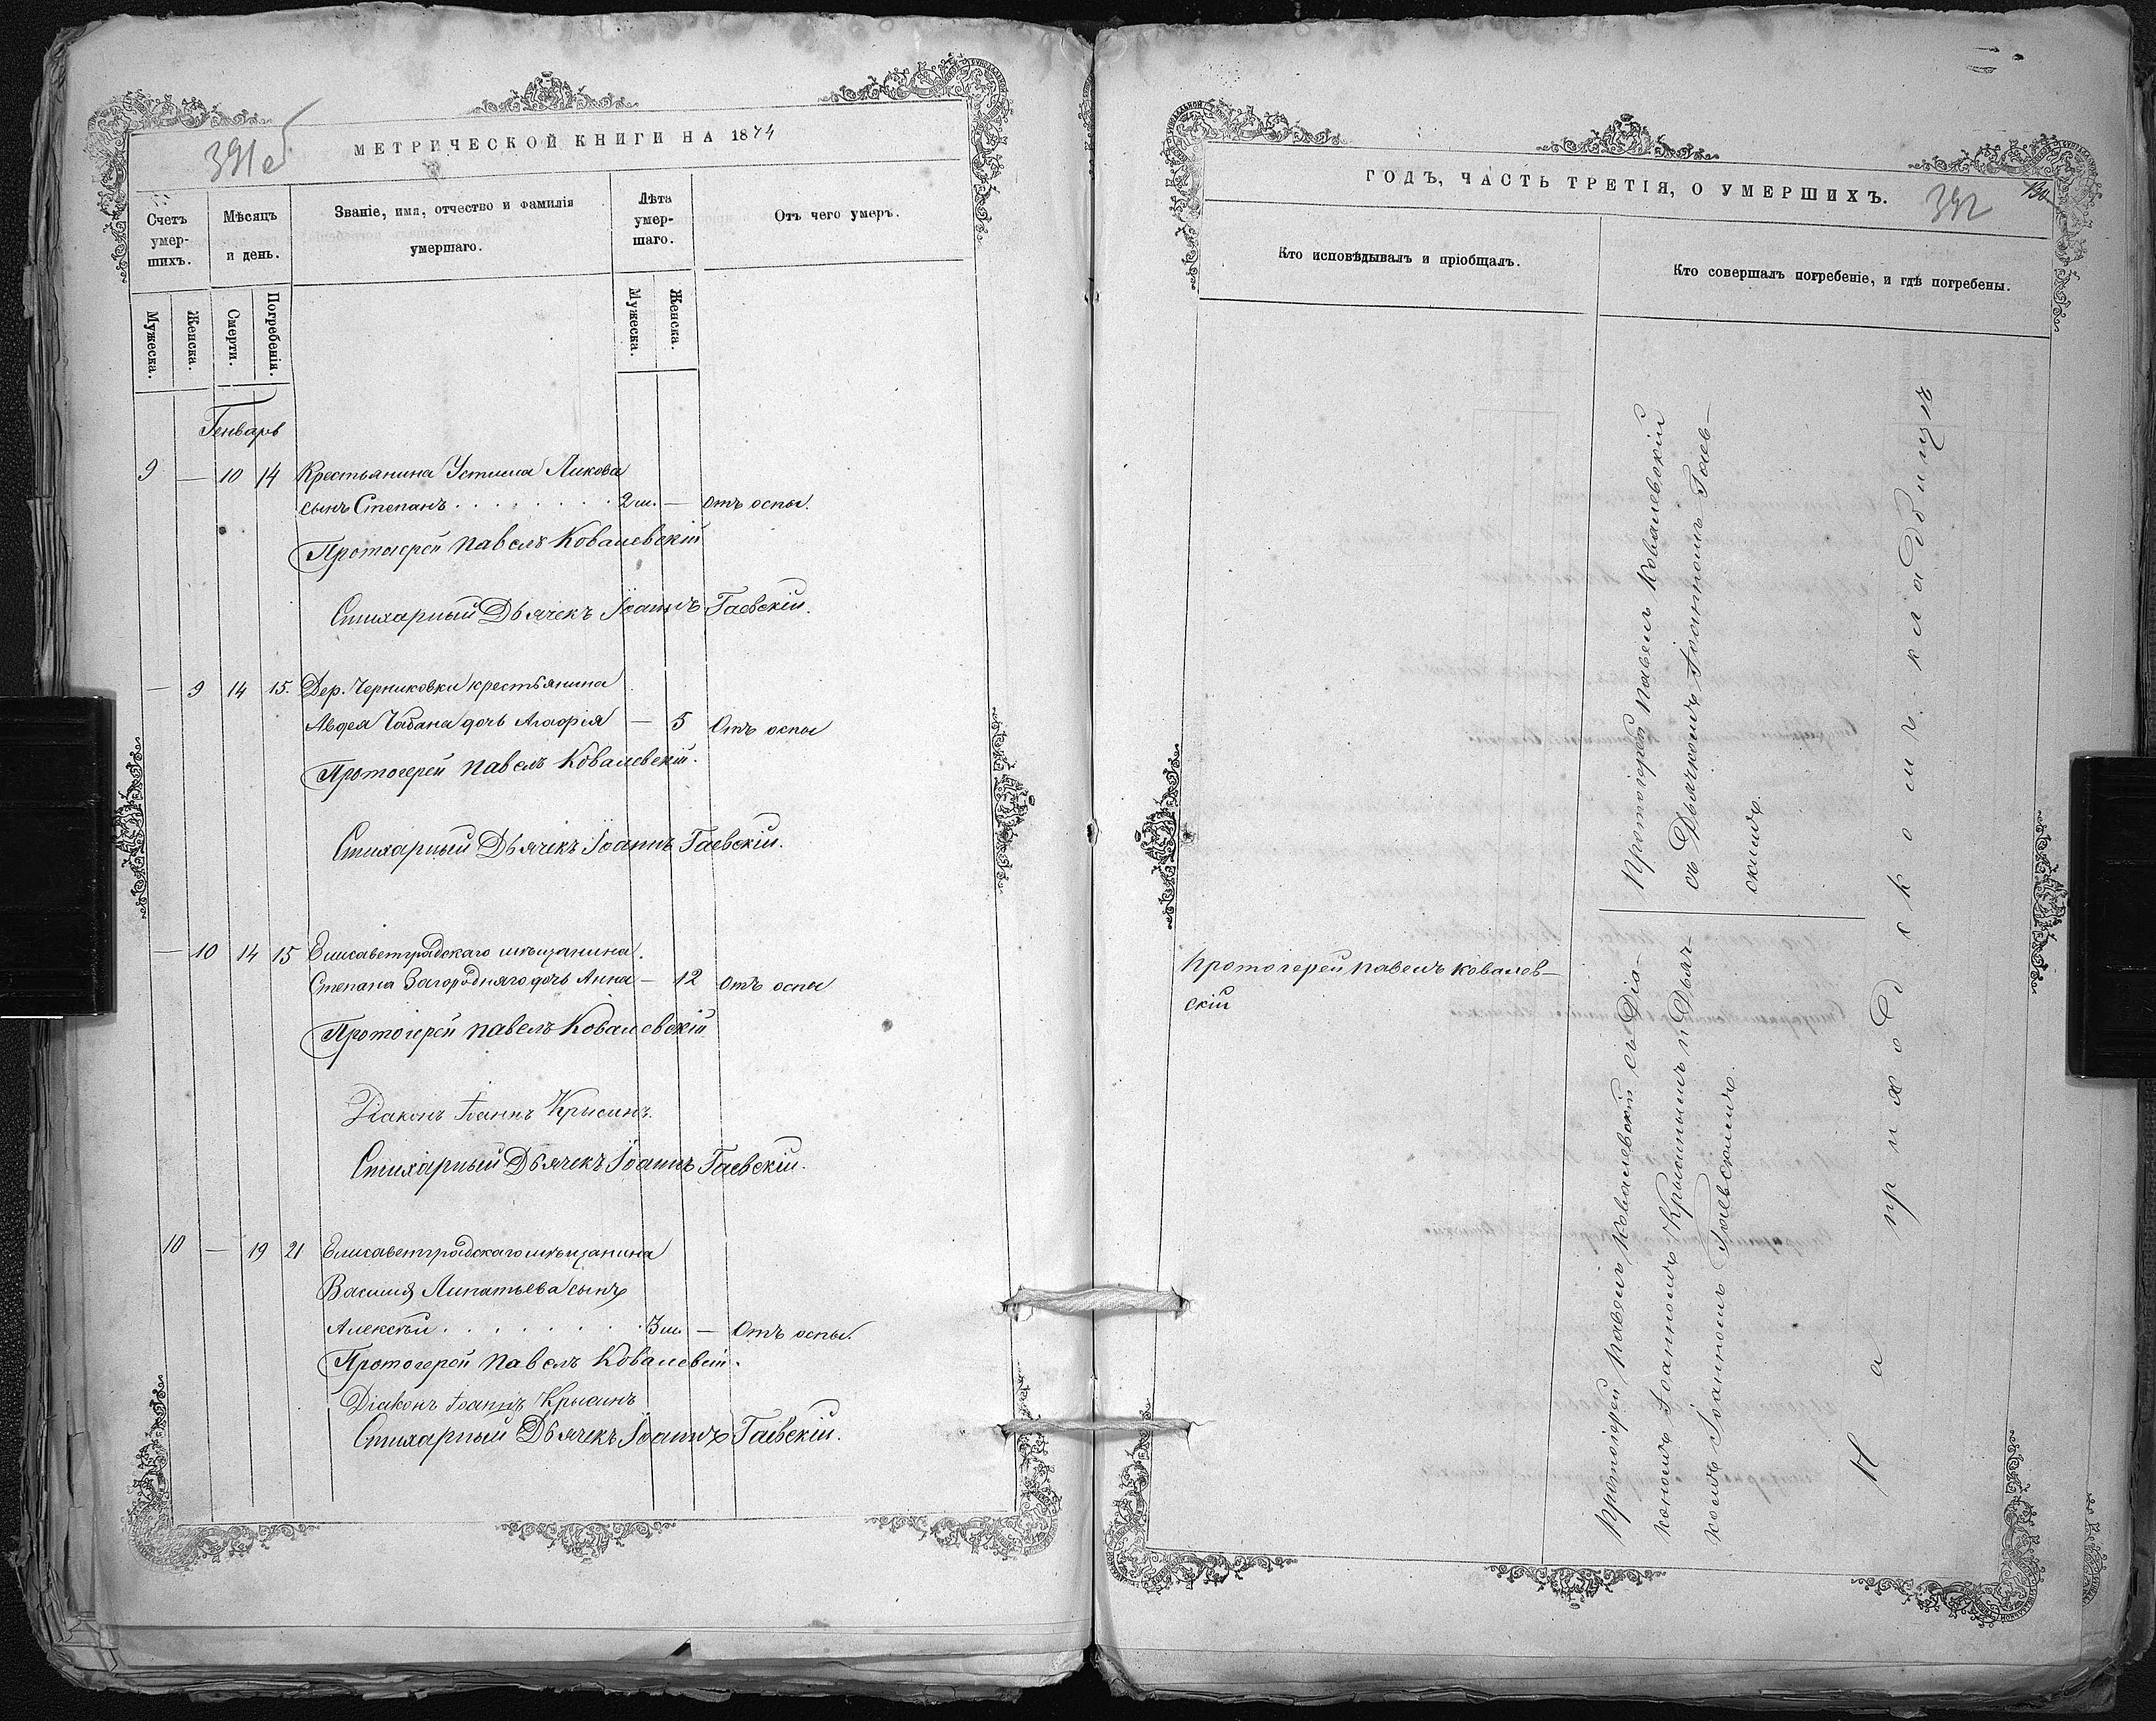 391 об
МЕТРИЧЕСКОЙ КНИГИ НА 1874
Счетъ умер-шихъ.
Мѣсяцъ и день.
Званіе, имя, отчество и фамилія умершаго.
Лѣта умер-шаго.
Отъ чего умеръ.
Мужеска.
Женска.
Смерти.
Погребенія.
Мужеска.
Женска.
Генварь
9 — 10 14 Крестьянина Устима Ликова
сынъ Степанъ . . . . . . . . 2 м. — отъ оспы.
Протоіерей Павелъ Ковалевскій
Стихарный Дьячекъ Іоаннъ Гаевскій.
— 9 14 15. Дер. Черниковки крестьянина
Авдея Чабана дочь Агафія — 5 Отъ оспы
Протоіерей Павелъ Ковалевскій.
Стихарный Дьячекъ Іоаннъ Гаевскій.
— 10 14 15 Елисаветградскаго мѣщанина
Степана Загородняго дочь Анна — 12 Отъ оспы
Протоіерей Павелъ Ковалевскій
Діаконъ Іоаннъ Крысинъ.
Стихарный Дьячекъ Іоаннъ Гаевскій.
10 — 19 21 Елисаветградскаго мѣщанина
Василія Липатьева сынъ
Алексѣй . . . . . . . . 3 м. — Отъ оспы.
Протоіерей Павелъ Ковалевскій.
Діаконъ Іоаннъ Крысинъ
Стихарный Дьячекъ Іоаннъ Гаевскій.
ГОДЪ, ЧАСТЬ ТРЕТІЯ, О УМЕРШИХЪ.
392
Кто исповѣдывалъ и пріобщалъ.
Кто совершалъ погребеніе, и гдѣ погребены.
Протоіерей Павелъ Ковалев-
скій
Протоіерей Павелъ Ковалевскій
съ Дьячкомъ Іоанномъ Гаев-
скимъ.
Протоіерей Павелъ Ковалевскій съ Діа-
кономъ Іоанномъ Крысинымъ и Дьяч-
комъ Іоанномъ Гаевскимъ.
На приходскомъ кладбищѣ